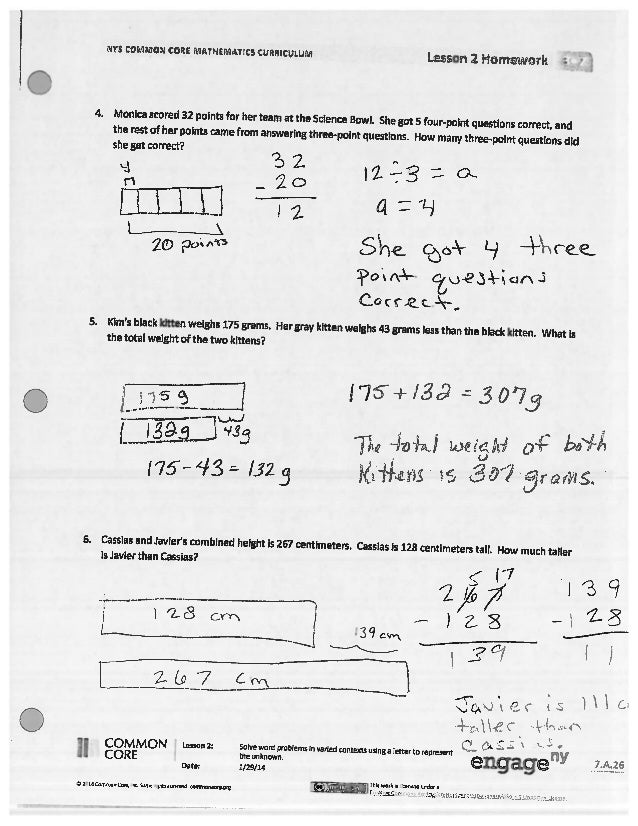 NYS COMMON CORE MATHEMATICS CURRICULUM
Lesson 2 Homework
4. Monica scored 32 points for her team at the Science Bowl. She got 5 four-point questions correct, and
the rest of her points came from answering three-point questions. How many three-point questions did
she get correct?
4
20 points
32
- 20
12
12 ÷ 3 = a
a = 4
She got 4 three
point questions
correct.
5. Kim's black kitten weighs 175 grams. Her gray kitten weighs 43 grams less than the black kitten. What is
the total weight of the two kittens?
175 g
132g
43g
175 - 43 = 132 g
175 + 132 = 307g
The total weight of both
Kittens is 307 grams.
6. Cassias and Javier's combined height is 267 centimeters. Cassias is 128 centimeters tall. How much taller
is Javier than Cassias?
128 cm
139 cm
267 cm
5 17
267
- 128
139
139
- 128
11
Javier is 11 c
taller than
Cassius.
COMMON
CORE
Lesson 2:
Solve word problems in varied contexts using a letter to represent
the unknown.
Date:
1/29/14
engage ny
7.A.26
© 2014 Common Core, Inc. Some rights reserved. commoncore.org
This work is licensed under a